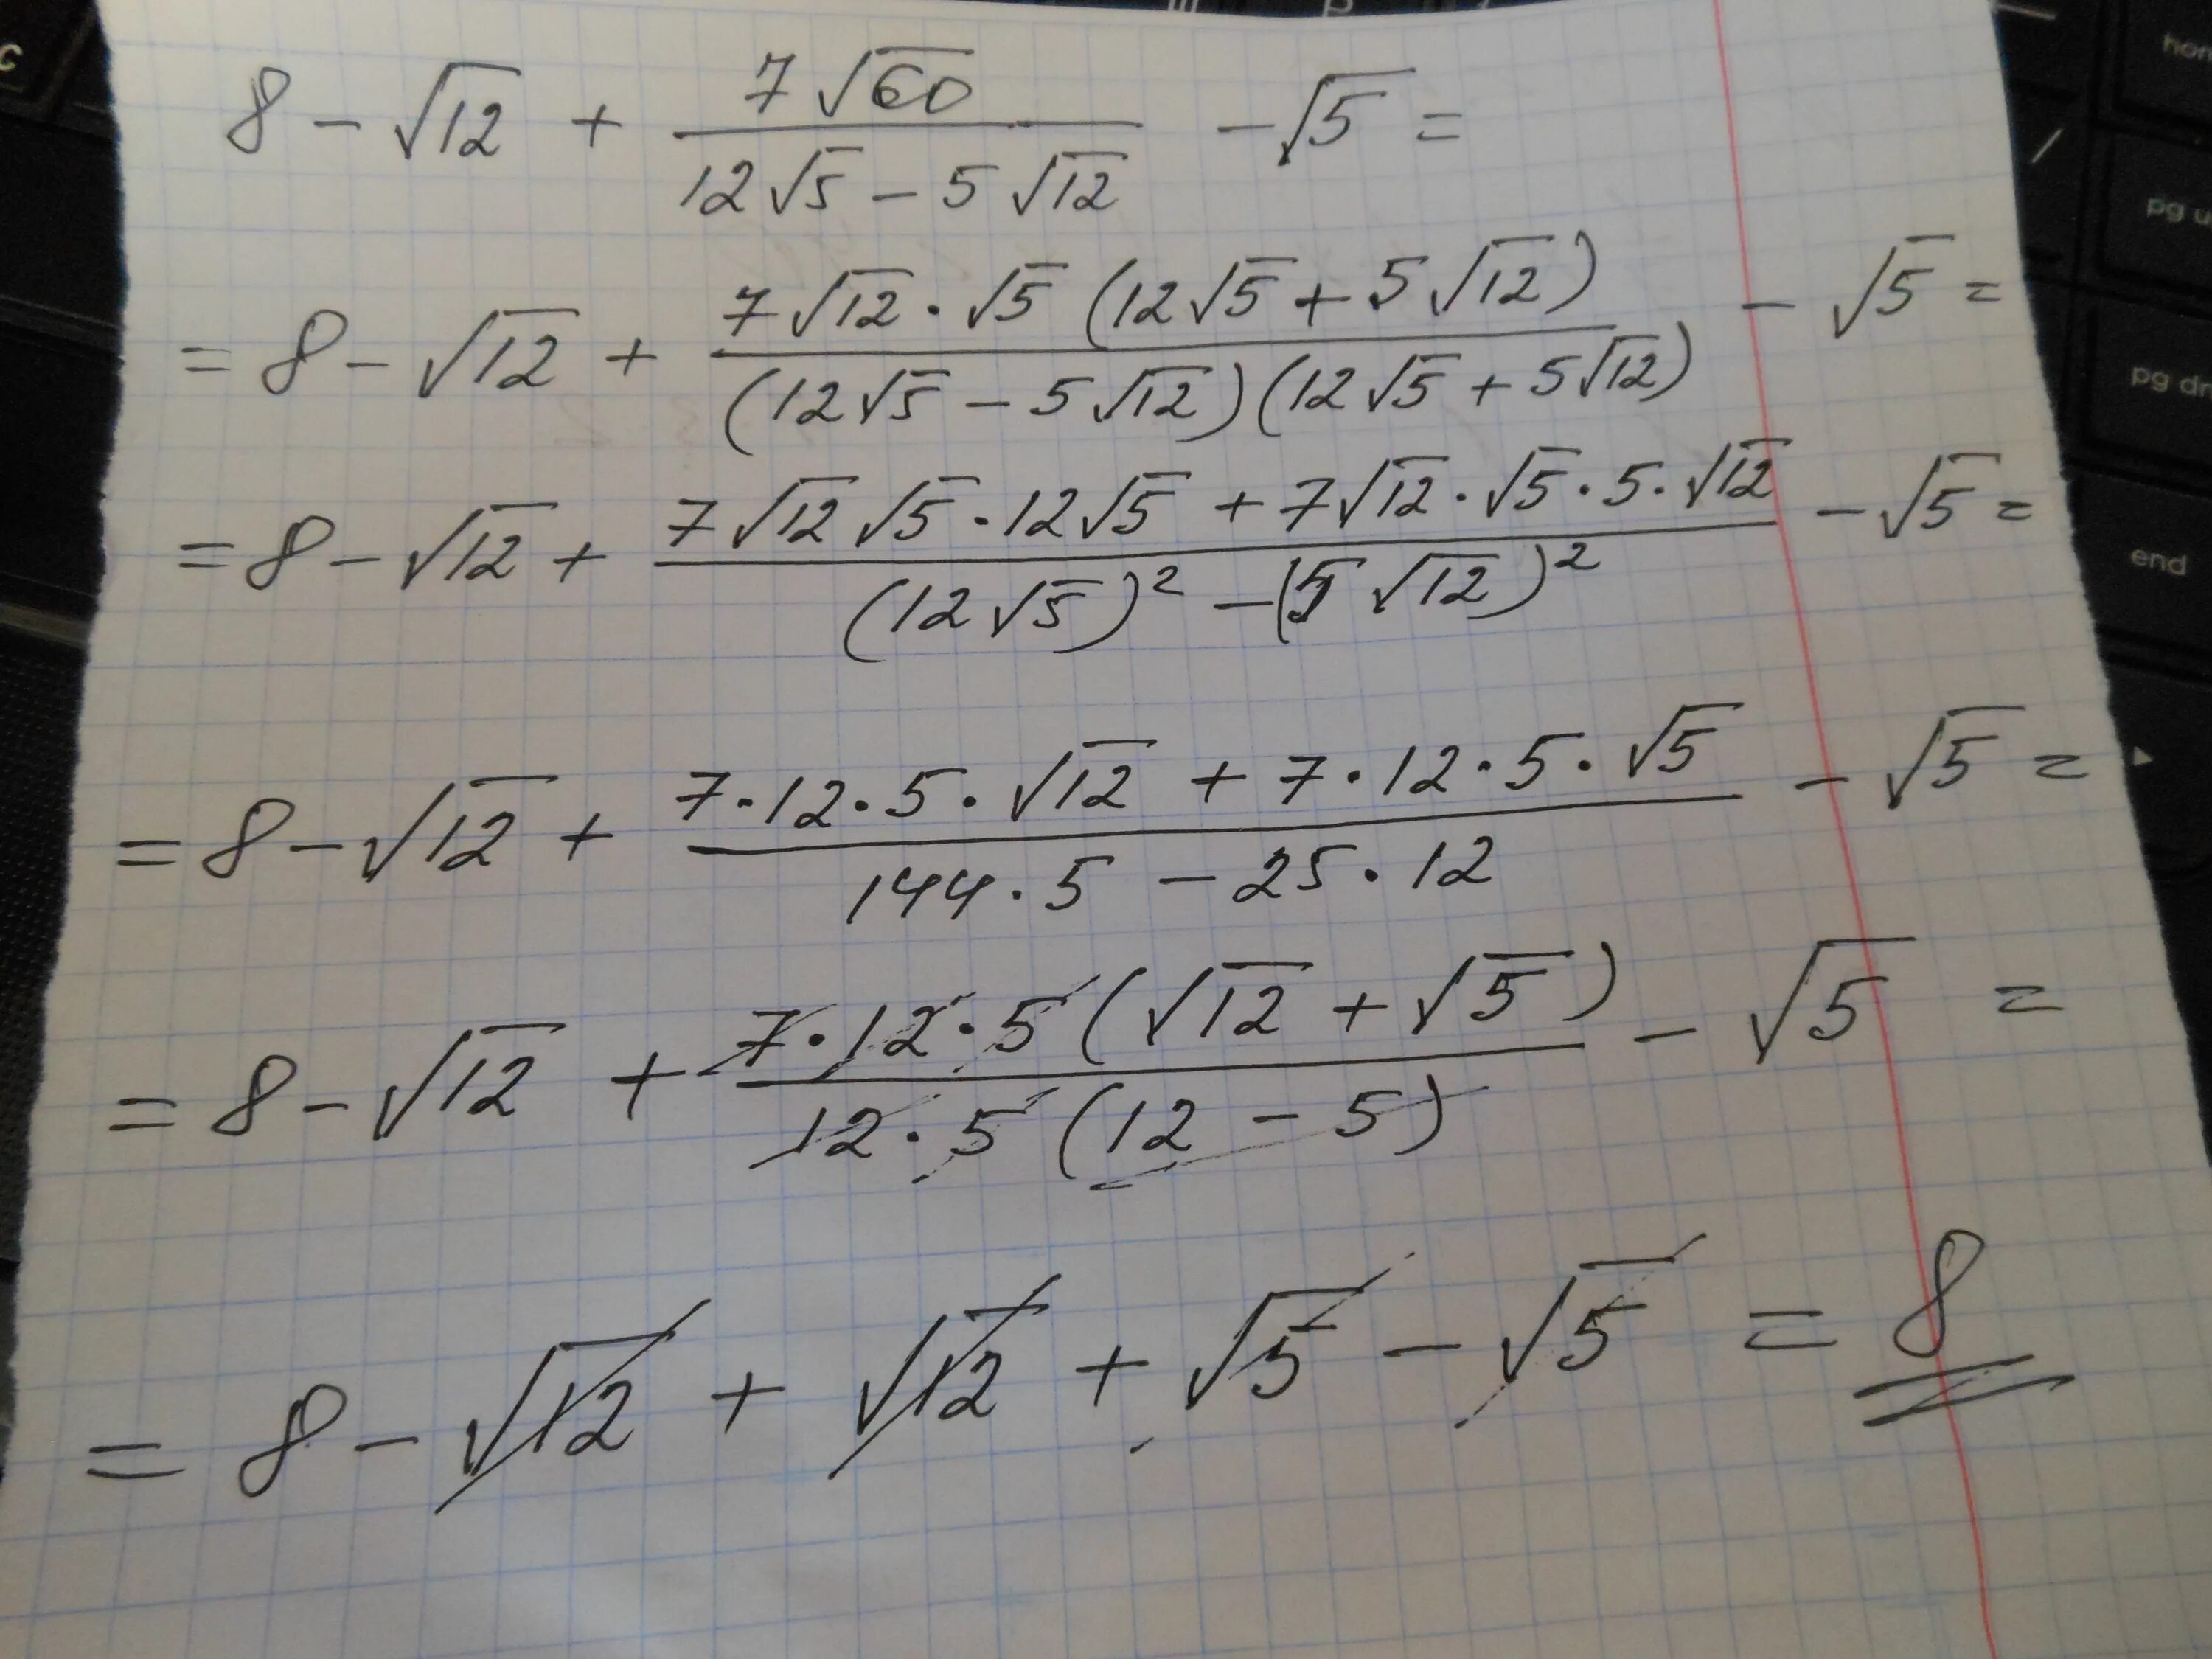 8 - √12 + (7√60)/(12√5 - 5√12) - √5 =
= 8 - √12 + (7√12 · √5 (12√5 + 5√12))/((12√5 - 5√12)(12√5 + 5√12)) - √5 =
= 8 - √12 + (7√12 √5 · 12√5 + 7√12 · √5 · 5 · √12)/((12√5)² - (5√12)²) - √5 =
= 8 - √12 + (7 · 12 · 5 · √12 + 7 · 12 · 5 · √5)/(144 · 5 - 25 · 12) - √5 =
= 8 - √12 + (7 · 12 · 5 (√12 + √5))/(12 · 5 (12 - 5)) - √5 =
= 8 - √12 + √12 + √5 - √5 = 8
c
pg u
pg dn
end